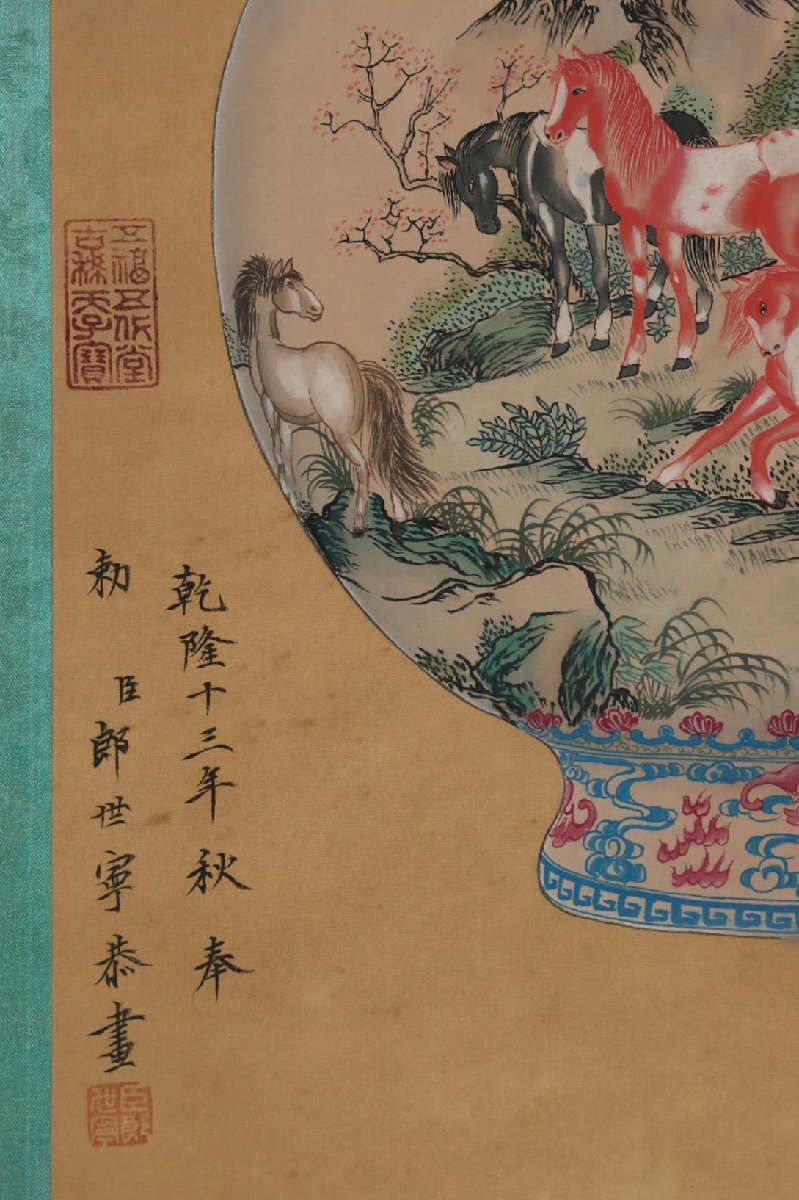 乾隆十三年秋奉
勅 臣郎世寧恭畫
五福五代堂古稀天子寶
臣郎世寧